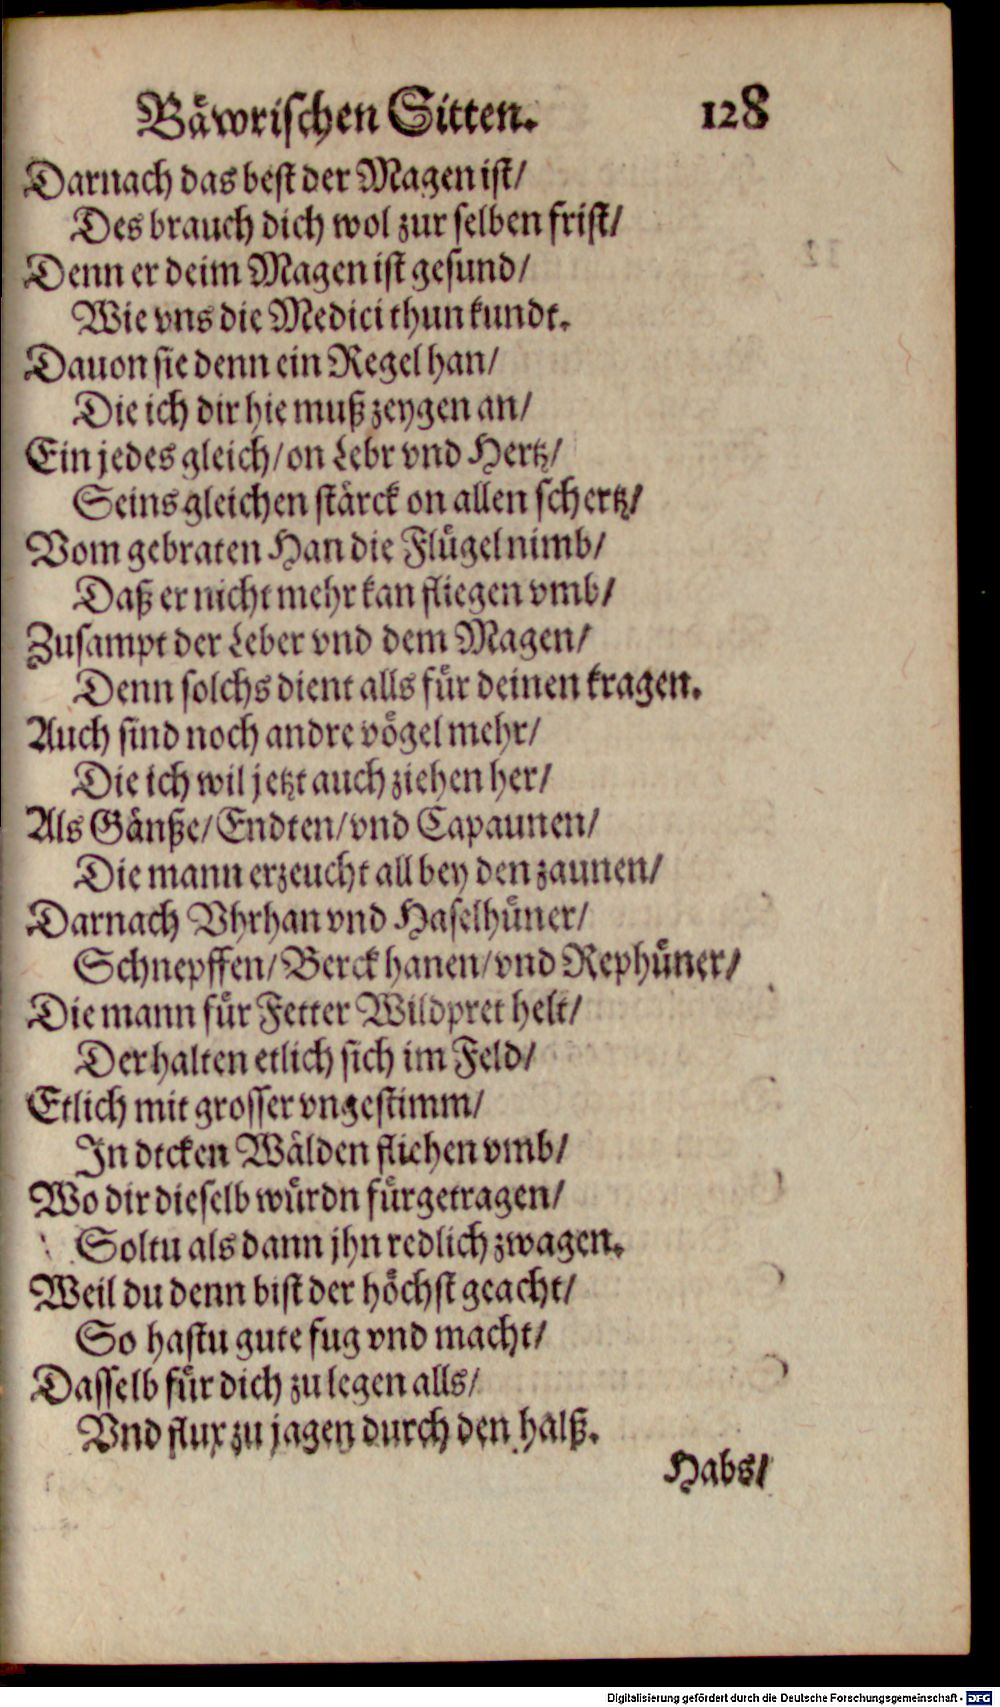 Bäwrischen Sitten. 128
Darnach das best der Magen ist/
Des brauch dich wol zur selben frist/
Denn er deim Magen ist gesund/
Wie vns die Medici thun kundt.
Dauon sie denn ein Regel han/
Die ich dir hie muß zeygen an/
Ein jedes gleich/ on Lebr vnd Hertz/
Seins gleichen stärck on allen schertz/
Vom gebraten Han die Flügel nimb/
Daß er nicht mehr kan fliegen vmb/
Zusampt der Leber vnd dem Magen/
Denn solchs dient alls für deinen kragen.
Auch sind noch andre vögel mehr/
Die ich wil jetzt auch ziehen her/
Als Gänße/ Endten/ vnd Capaunen/
Die mann erzeucht all bey den zaunen/
Darnach Vhrhan vnd Haselhüner/
Schnepffen/ Berckhanen/ vnd Rephüner/
Die mann für Fetter Wildpret helt/
Der halten etlich sich im Feld/
Etlich mit grosser vngestimm/
In dicken Wälden fliehen vmb/
Wo dir dieselb würdn fürgetragen/
Soltu als dann jhn redlich zwagen.
Weil du denn bist der höchst geacht/
So hastu gute fug vnd macht/
Dasselb für dich zu legen alls/
Vnd flux zu jagen durch den halß.
Habs/
Digitalisierung gefördert durch die Deutsche Forschungsgemeinschaft - DFG